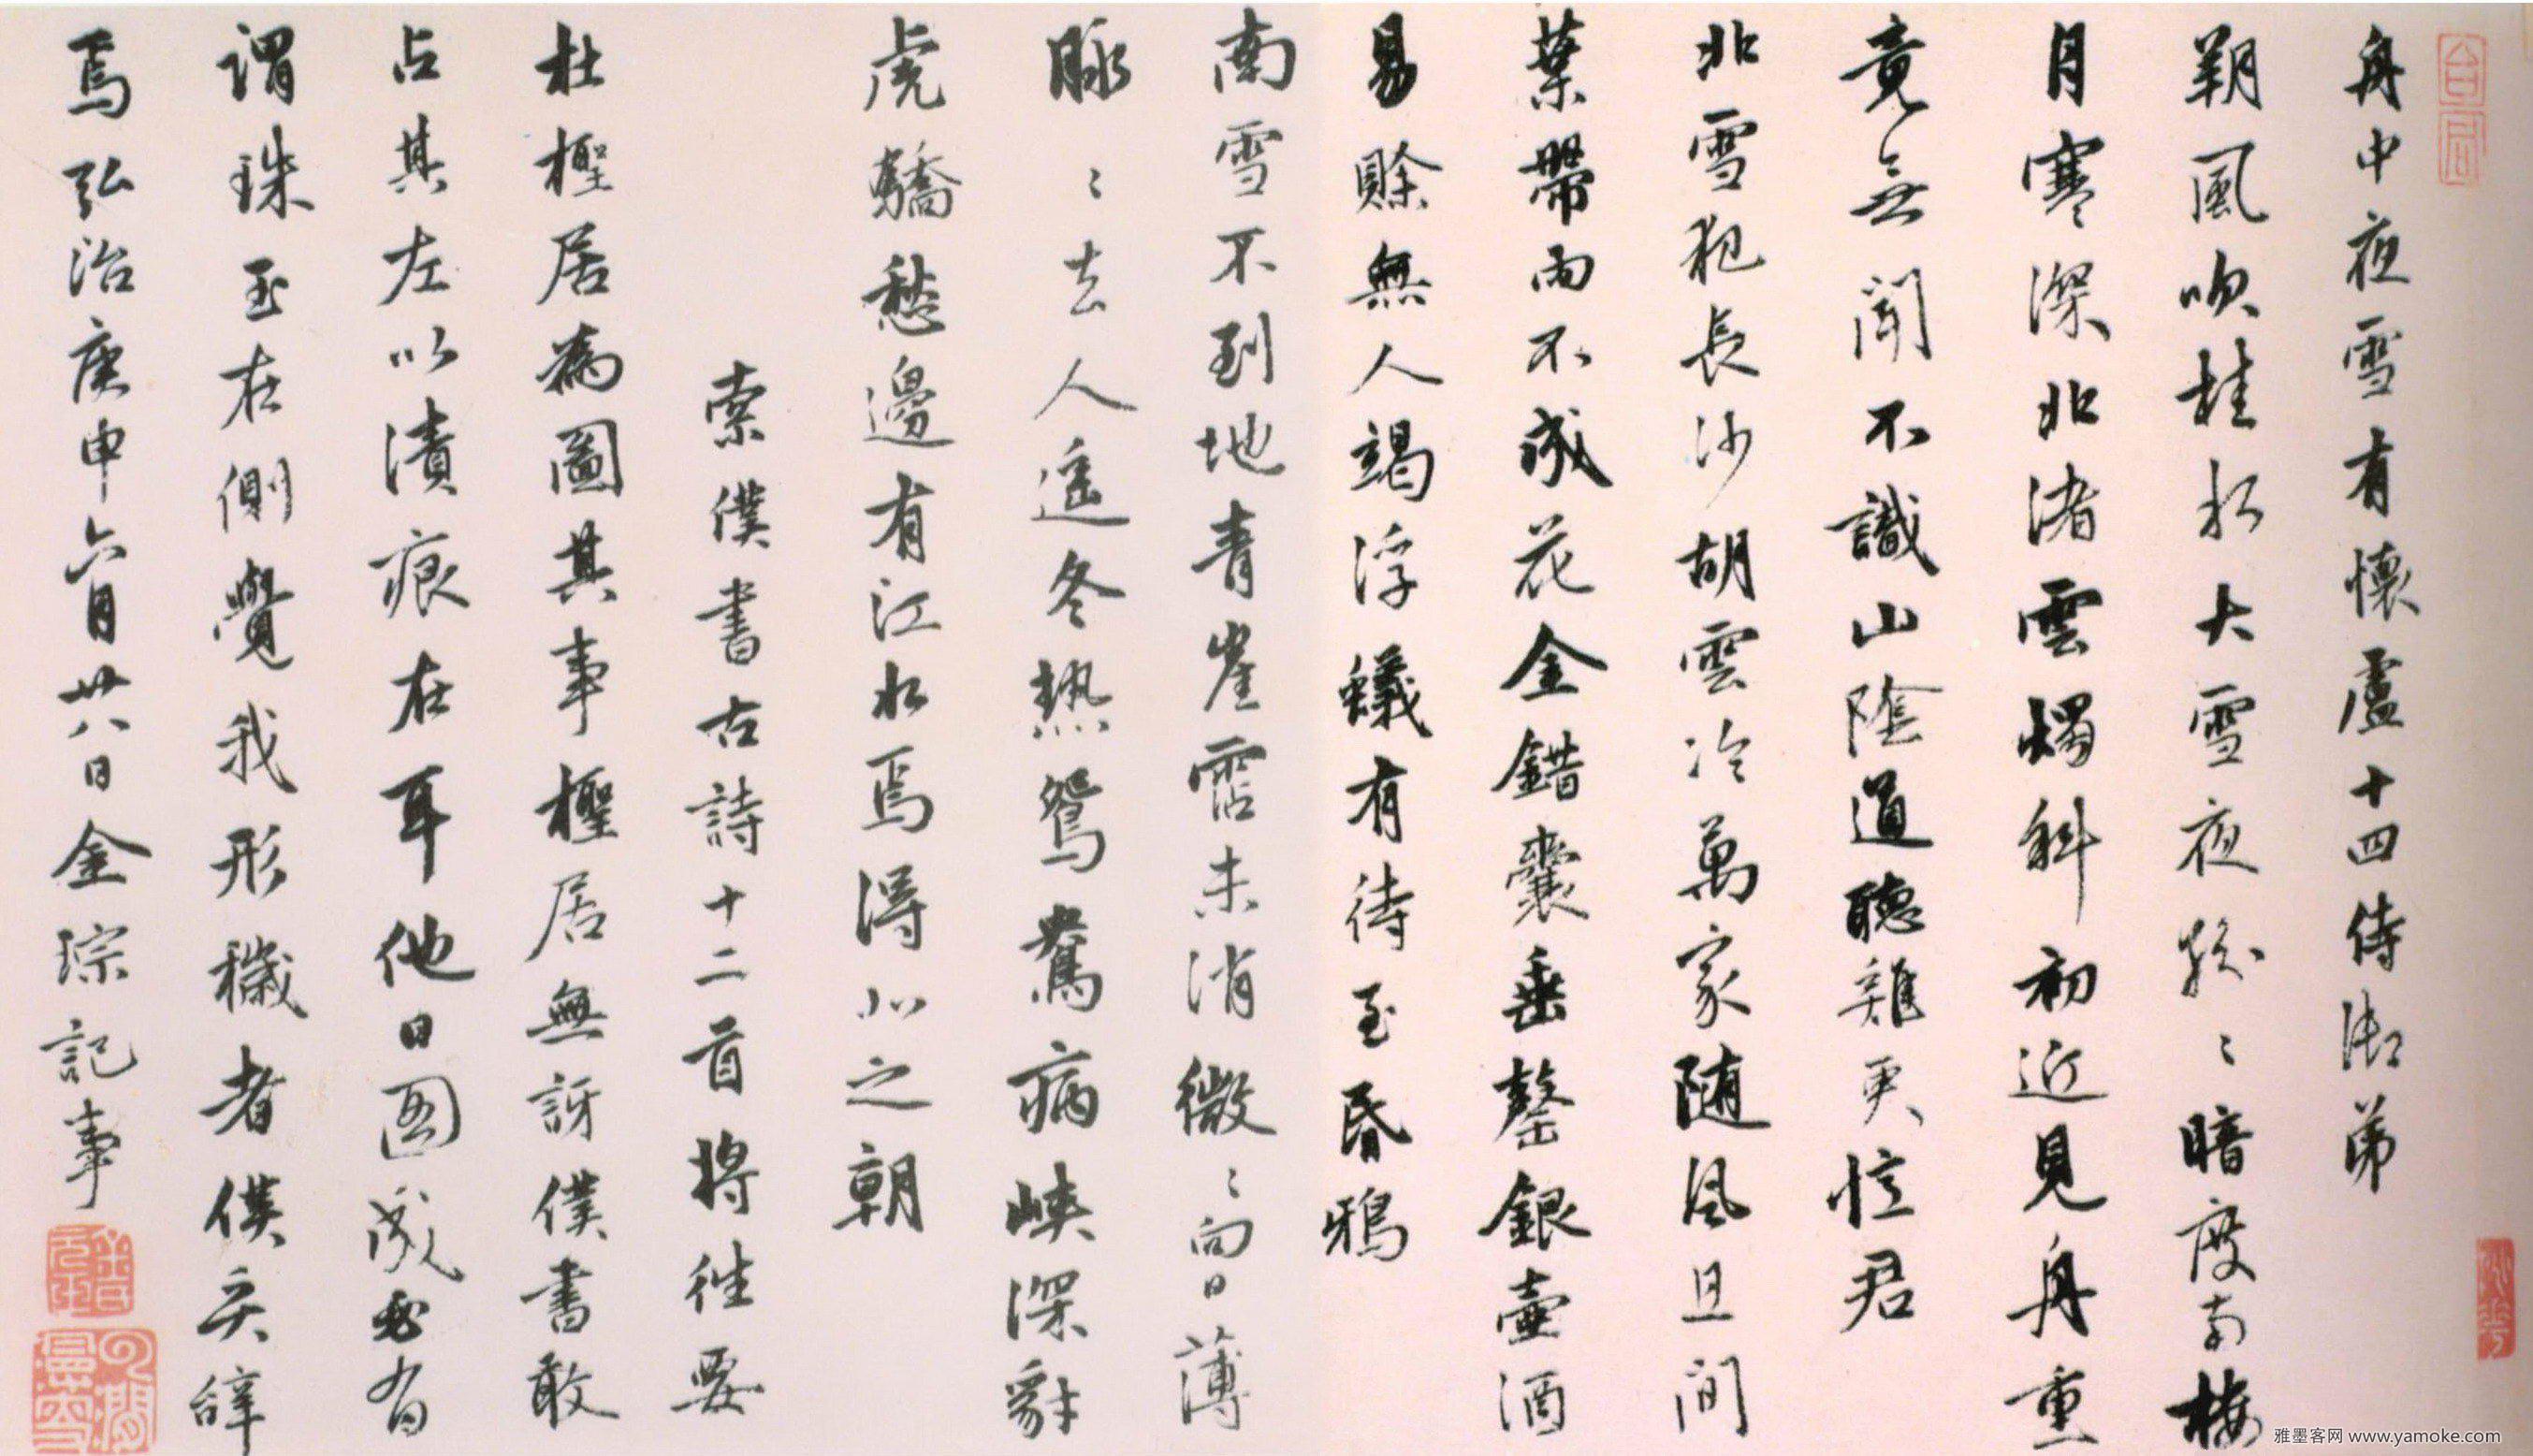 舟中夜雪有懷盧十四侍御弟
朔風吹桂水大雪夜紛〻暗度南樓
月寒深北渚雲燭斜初近見舟重
竟無聞不識山陰道聽雞更憶君
北雪犯長沙胡雲冷萬家隨風且間
葉帶雨不成花金錯囊垂罄銀壺酒
易賒無人竭浮蟻有待至昏鴉
南雪不到地青崖霑未消微〻向日薄
脉〻去人遥冬熱鴛鴦病峽深豺
虎驕愁邊有江水焉得北之朝
索僕書古詩十二首將徃要
杜檉居爲圖其事檉居無訝僕書敢
占其左以漬痕在耳他日圖成必有
謂珠玉在側覺我形穢者僕奚辭
焉弘治庚申六月廿八日金琮記事
雅墨客网 www.yamoke.com